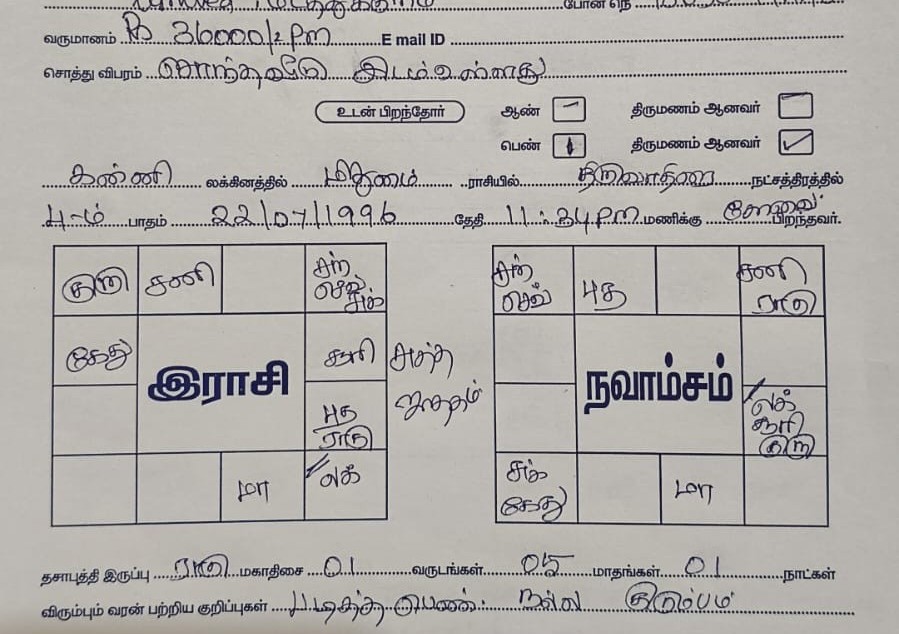 வருமானம் Rs 36000/- Pm E mail ID
சொத்து விபரம் சொந்தவீடு இடம் உள்ளது
உடன் பிறந்தோர் ஆண் – திருமணம் ஆனவர் –
பெண் 1 திருமணம் ஆனவர் ✓
கன்னி லக்கினத்தில் மிதுனம் ராசியில் திருவாதிரை நட்சத்திரத்தில்
4-ம் பாதம் 22/07/1996 தேதி 11:34 Pm மணிக்கு பிறந்தவர்.
குரு சனி சந் செவ் சுக்
கேது இராசி சூரி
புத ராகு
மா லக்
அஸ்த
சந் செவ் புத சனி ராகு
நவாம்சம்
லக் சூரி குரு
சுக் கேது மா
தசாபுத்தி இருப்பு ராகு மகாதிசை 01 வருடங்கள் 05 மாதங்கள் 01 நாட்கள்
விரும்பும் வரன் பற்றிய குறிப்புகள் படித்த பெண். நல்ல குடும்பம்